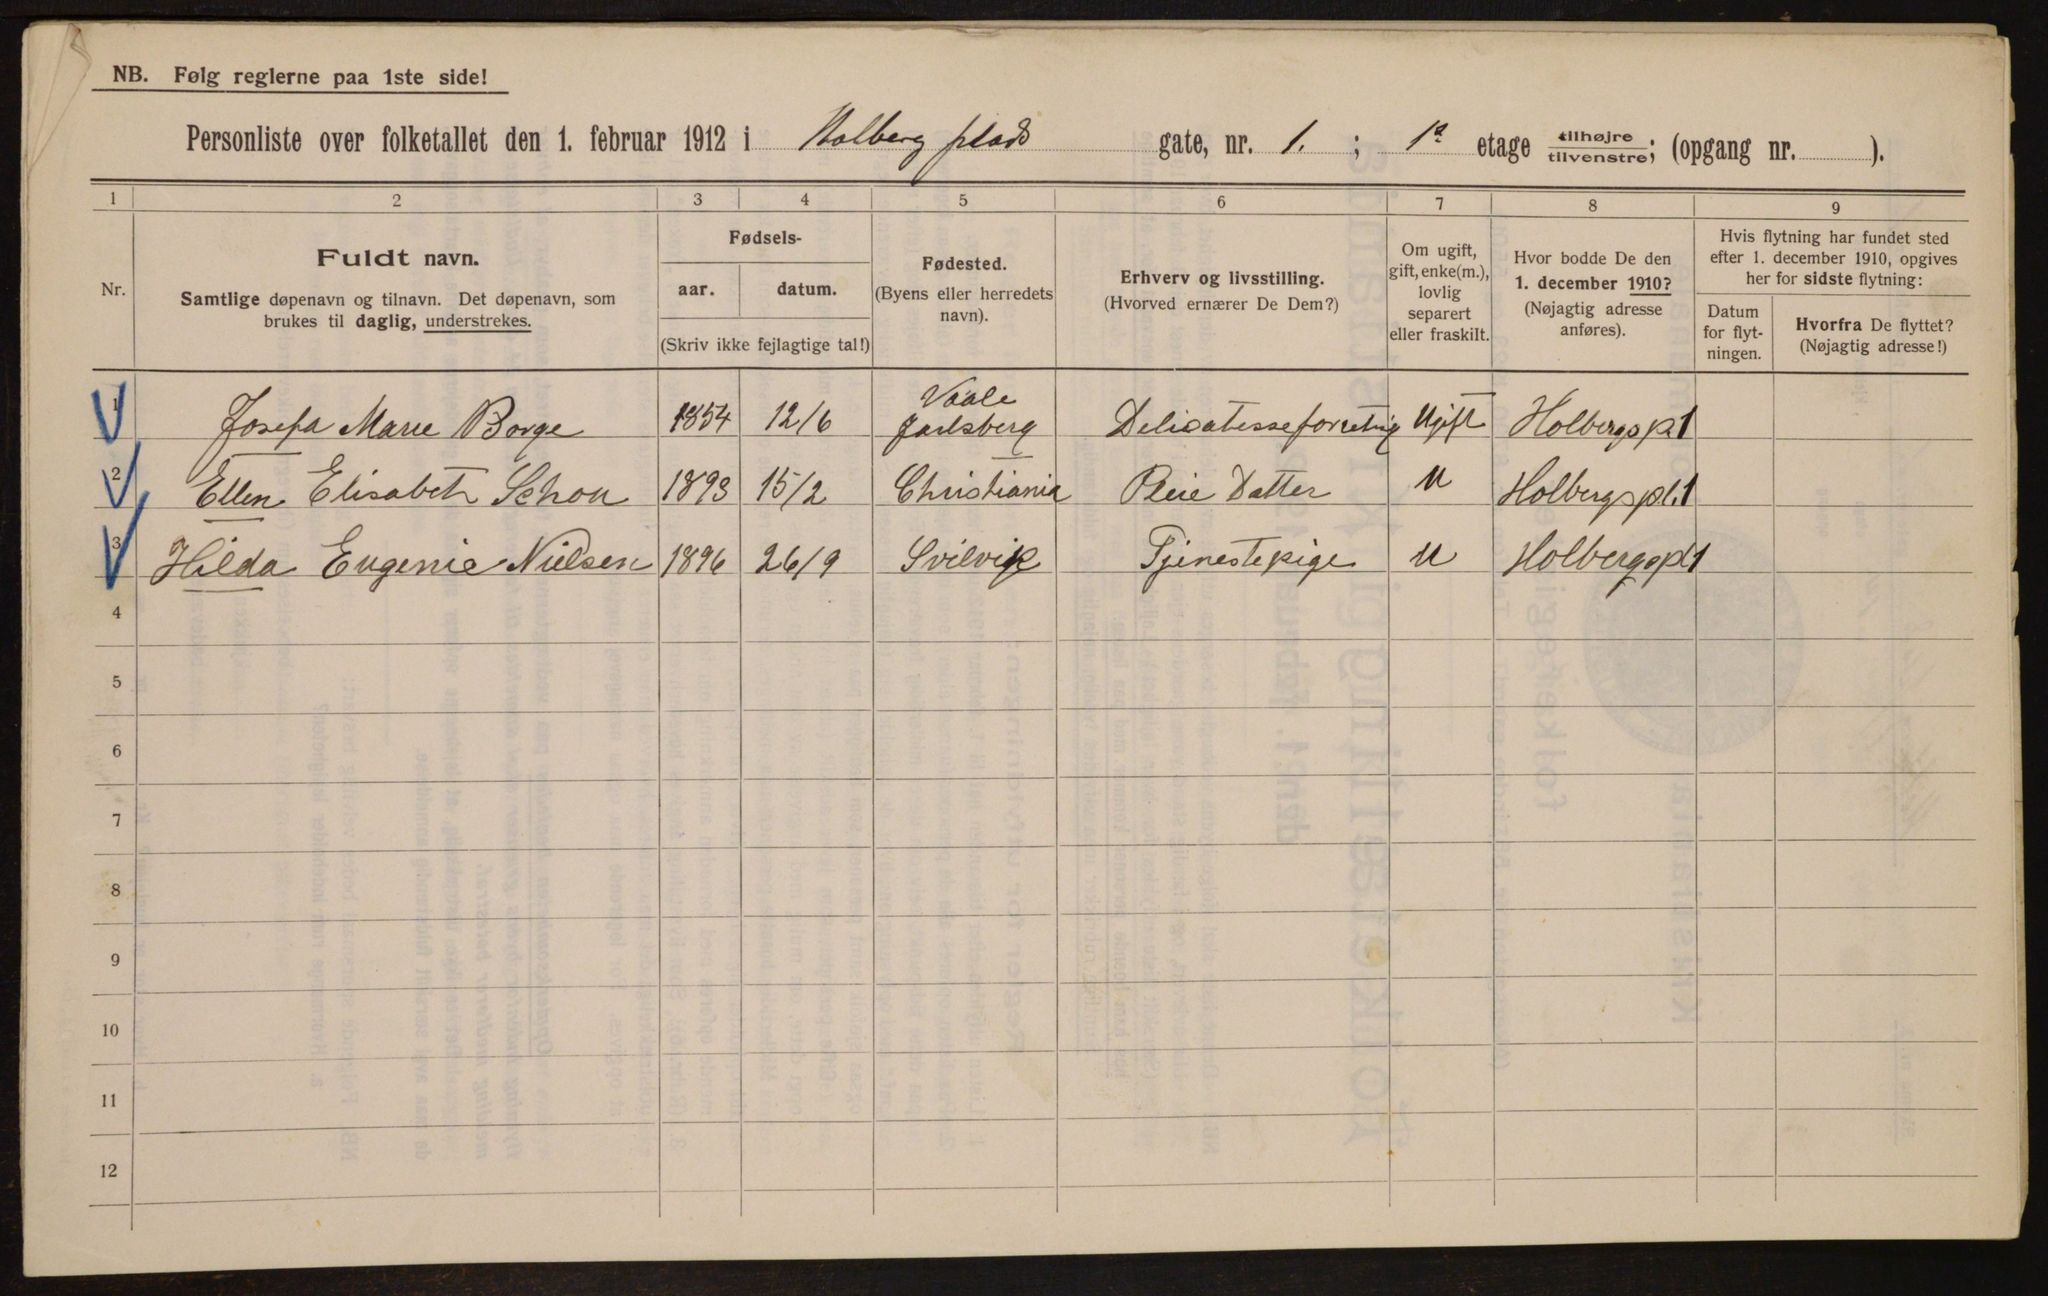 NB. Følg reglerne paa 1ste side!
Personliste over folketallet den 1. februar 1912 i Holberg plads gate, nr. 1. ; 1ª etage tilhøjre/tilvenstre; (opgang nr. ).
1 2 3 4 5 6 7 8 9
Nr.
Fuldt navn.
Samtlige døpenavn og tilnavn. Det døpenavn, som
brukes til daglig, understrekes.
Fødsels-
aar. datum.
(Skriv ikke fejlagtige tal!)
Fødested.
(Byens eller herredets
navn).
Erhverv og livsstilling.
(Hvorved ernærer De Dem?)
Om ugift,
gift, enke(m.),
lovlig
separert
eller fraskilt.
Hvor bodde De den
1. december 1910?
(Nøjagtig adresse
anføres).
Hvis flytning har fundet sted
efter 1. december 1910, opgives
her for sidste flytning:
Datum
for flyt-
ningen.
Hvorfra De flyttet?
(Nøjagtig adresse!)
1 Josefa Marie Borge 1854 12/6 Vaale Jarlsberg Delicatesseforretnig Ugift Holbergspl 1
2 Ellen Elisabeth Schou 1893 15/2 Christiania Pleie Datter U Holbergspl. 1
3 Hilda Eugenie Nielsen 1896 26/9 Svilvik Tjenestepige U Holbergspl 1
4
5
6
7
8
9
10
11
12